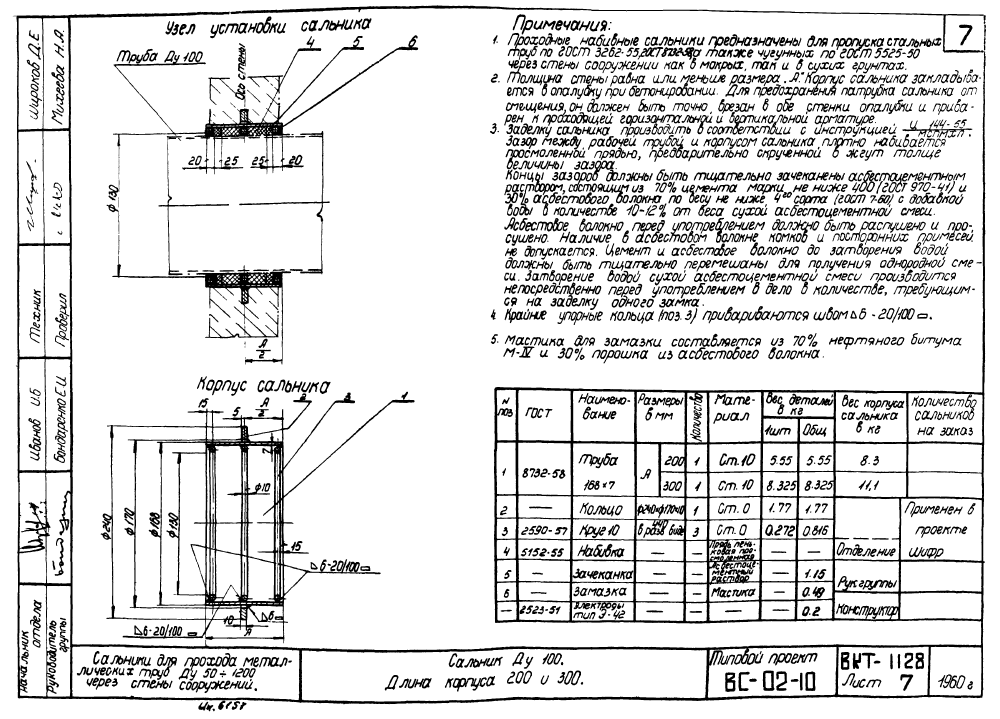 Узел установки сальника
Труба Ду 100
Ось стены
4
5
6
20
25
25
20
ф 130
А
2
Корпус сальника
15
5
А
2
2
3
1
7
ф10
ф 240
ф 170
ф 168
ф 130
15
6-20/100
6-20/100
10
А
6
7
Примечания:
1. Проходные набивные сальники предназначены для пропуска стальных
труб по ГОСТ 3262-55, а также чугунных по ГОСТ 5525-50
через стены сооружений как в мокрых, так и в сухих грунтах.
2. Толщина стены равна или меньше размера „А". Корпус сальника закладыва-
ется в опалубку при бетонировании. Для предохранения патрубка сальника от
смещения, он должен быть точно врезан в обе стенки опалубки и прива-
рен к проходящей горизонтальной и вертикальной арматуре.
3. Заделку сальника производить в соответствии с инструкцией И 144-55
МСПМХП.
Зазор между рабочей трубой и корпусом сальника плотно набивается
просмоленной прядью, предварительно скрученной в жгут толще
величины зазора.
Концы зазоров должны быть тщательно зачеканены асбестоцементным
раствором, состоящим из 70% цемента марки не ниже 400 (ГОСТ 970-41) и
30% асбестового волокна по весу не ниже 4го сорта (ГОСТ 7-60) с добавкой
воды в количестве 10-12% от веса сухой асбестоцементной смеси.
Асбестовое волокно перед употреблением должно быть распушено и про-
сушено. Наличие в асбестовом волокне комков и посторонних примесей
не допускается. Цемент и асбестовое волокно до затворения водой
должны быть тщательно перемешаны для получения однородной сме-
си. Затворение водой сухой асбестоцементной смеси производится
непосредственно перед употреблением в дело в количестве, требующим-
ся на заделку одного замка.
4. Крайние упорные кольца (поз. 3) привариваются швом 6-20/100.
5. Мастика для замазки составляется из 70% нефтяного битума
М-IV и 30% порошка из асбестового волокна.
N поз
ГОСТ
Наимено-
вание
Размеры
в мм
Количество
Мате-
риал
Вес деталей
в кг
1шт
Общ
Вес корпуса
сальника
в кг
Количество
сальников
на заказ
1
8732-58
Труба
168×7
А
200 1 Ст.10 5.55 5.55 8.3
300 1 Ст.10 8.325 8.325 11,1
2 — Кольцо ф240×ф170×10 1 Ст.0 1.77 1.77
3 2590-57 Круг 10 в разв. виде 3 Ст.0 0.272 0.816
4 5152-55 Набивка — — Прядь пень-
ковая про-
смоленная — —
5 — Зачеканка — — Асбестоце-
ментный
раствор — 1.15
6 — Замазка — — Мастика — 0.49
— 2523-51 Электроды
тип Э-42 — — — — 0.2
Применен в
проекте
Отделение
Шифр
Рук.группы
Конструктор
Сальники для прохода метал-
лических труб Ду 50÷1200
через стены сооружений.
Сальник Ду 100.
Длина корпуса 200 и 300.
Типовой проект
ВС-02-10
ВКТ-1128
Лист 7
1960 г
Ин. 6157
Начальник
отдела
Руководитель
группы
Иванов И.Б
Бондаренко Е.И.
Техник
Проверил
Широков Д.Е
Михеева Н.А.